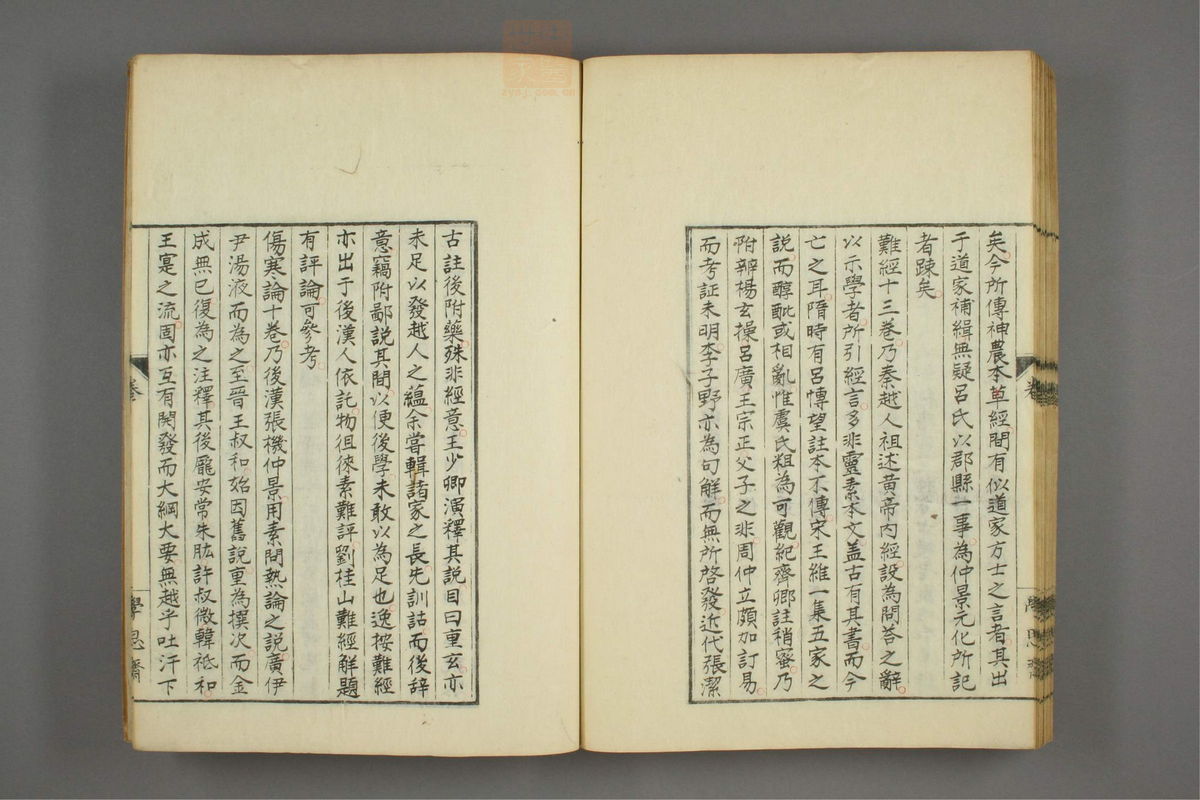 矣今所傳神農本草經間有似道家方士之言者其出
于道家補緝無疑呂氏以郡縣一事為仲景元化所記
者踈矣
難經十三卷乃秦越人祖述黄帝內經設為問荅之辭
以示學者所引經言多非靈素本文盖古有其書而今
亡之耳隋時有呂慱望註本不傳宋王維一集五家之
說而醇酏或相亂惟虞氏粗為可觀紀齊卿註稍蜜乃
附辨楊玄操呂廣王宗正父子之非周仲立頗加訂易
而考証未明李子野亦為句解而無所啓發近代張潔
古註後附藥殊非經意王少卿演釋其說目曰重玄亦
未足以發越人之蘊余嘗輯諸家之長先訓詁而後辞
意竊附鄙說其間以便後學未敢以為足也逸按難經
亦出于後漢人依託物徂徠素難評劉桂山難經解題
有評論可參考
傷寒論十卷乃後漢張機仲景用素問熱論之說廣伊
尹湯液而為之至晉王叔和始因舊說重為撰次而金
成無已復為之注釋其後龐安常朱肱許叔微韓祗和
王寔之流固亦互有開發而大綱大要無越乎吐汗下
學思齋